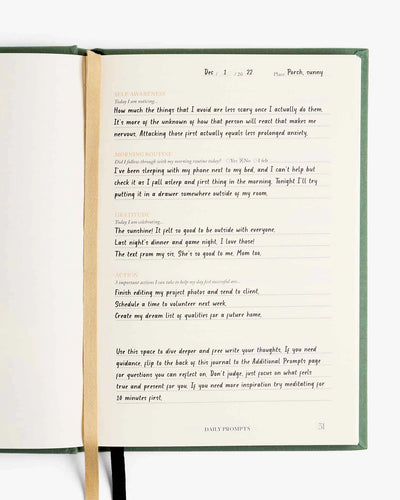 Dec / 1 / 20 22 Place Porch, sunny
SELF AWARENESS
Today I am noticing...
How much the things that I avoid are less scary once I actually do them.
It's more of the unknown of how that person will react that makes me
nervous. Attacking those first actually equals less prolonged anxiety.
MORNING ROUTINE
Did I follow through with my morning routine today? Yes No I felt
I've been sleeping with my phone next to my bed, and I can't help but
check it as I fall asleep and first thing in the morning. Tonight I'll try
putting it in a drawer somewhere outside of my room.
GRATITUDE
Today I am celebrating...
The sunshine! It felt so good to be outside with everyone.
Last night's dinner and game night. I love those!
The text from my sis. She's so good to me. Mom too.
ACTION
3 important actions I can take to help my day feel successful are...
Finish editing my project photos and send to client.
Schedule a time to volunteer next week.
Create my dream list of qualities for a future home.
Use this space to dive deeper and free write your thoughts. If you need
guidance, flip to the back of this journal to the Additional Prompts page
for questions you can reflect on. Don't judge, just focus on what feels
true and present for you. If you need more inspiration try meditating for
10 minutes first.
DAILY PROMPTS 51